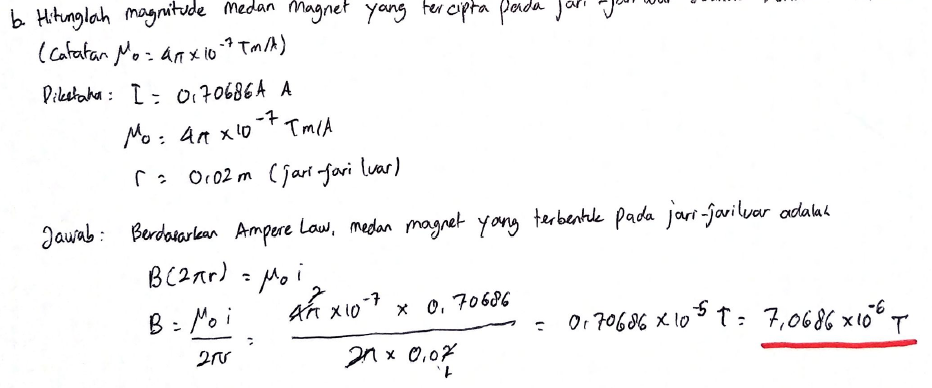 b. Hitunglah magnitude medan magnet yang tercipta pada jari-jari luar
(Catatan μ₀ = 4π × 10⁻⁷ Tm/A)
Diketahui : I = 0,70686A A
μ₀ = 4π × 10⁻⁷ Tm/A
r = 0,02 m (jari-jari luar)
Jawab : Berdasarkan Ampere Law, medan magnet yang terbentuk pada jari-jari luar adalah
B(2πr) = μ₀ i
B = μ₀ i / 2πr = 4π × 10⁻⁷ × 0,70686 / 2π × 0,02 = 0,70686 × 10⁻⁵ T = 7,0686 × 10⁻⁶ T